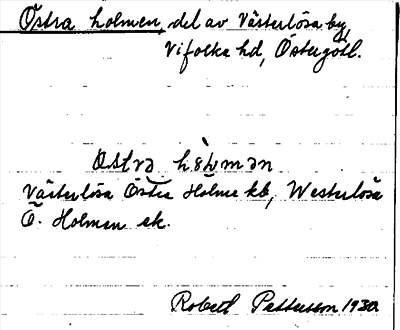 Östra holmen, del av Västerlösa by,
Vifolka hd, Östergötl.
Västerlösa Östre Holme kb, Westerlösa
Ö. Holmen sk.
Robert Pettersson 1930